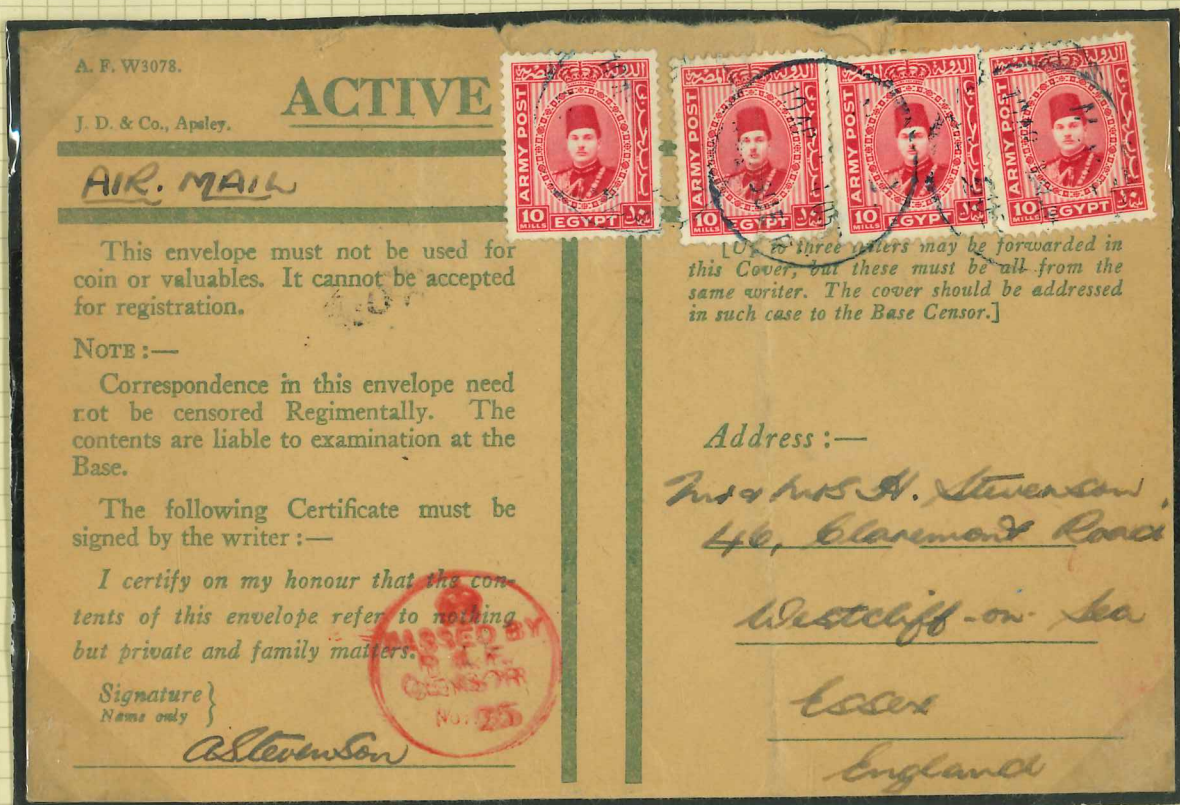 A. F. W3078.
ACTIVE
J. D. & Co., Apsley.
AIR. MAIL
ARMY POST
10
MILLS
EGYPT
ARMY POST
10
MILLS
EGYPT
ARMY POST
10
MILLS
EGYPT
ARMY POST
10
MILLS
EGYPT
This envelope must not be used for
coin or valuables. It cannot be accepted
for registration.
NOTE :—
Correspondence in this envelope need
not be censored Regimentally. The
contents are liable to examination at the
Base.
The following Certificate must be
signed by the writer :—
I certify on my honour that the con-
tents of this envelope refer to nothing
but private and family matters.
Signature }
Name only
AStevenson
PASSED BY
CENSOR
No. 25
to three letters may be forwarded in
this Cover, but these must be all from the
same writer. The cover should be addressed
in such case to the Base Censor.]
Address :—
Mr & Mrs H. Stevenson,
46, Claremont Road
Westcliff-on-Sea
Essex
England